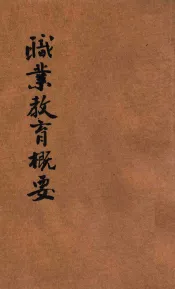 職業教育概要